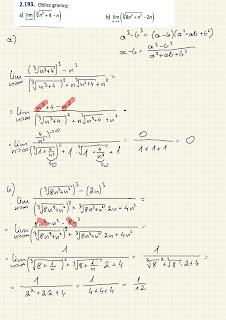 2.193. Oblicz granicę:
a) lim n→∞ (∛(n³+4) − n)    b) lim n→∞ (∛(8n³+n²) − 2n).
a)
a³−b³ = (a−b)(a²+ab+b²)
a−b = (a³−b³)/(a²+ab+b²)
lim n→∞ ((∛(n³+4))³ − n³)/((∛(n³+4))² + n∛(n³+4) + n²) =
= lim n→∞ (n³+4−n³)/((∛(n³+4))² + n∛(n³+4) + n²) =
= lim n→∞ (4/n²)/((∛(1+4/n³))² + 1·∛(1+4/n³) + 1) = 0/(1+1+1) = 0
b)
lim n→∞ ((∛(8n³+n²))³ − (2n)³)/((∛(8n³+n²))² + ∛(8n³+n²)·2n + 4n²) =
= lim n→∞ (8n³+n²−8n³)/((∛(8n³+n²))² + ∛(8n³+n²)·2n + 4n²) =
= lim n→∞ 1/((∛(8+1/n))² + ∛(8+1/n)·2 + 4) = 1/(∛8² + ∛8·2 + 4) =
= 1/(2²+2·2+4) = 1/(4+4+4) = 1/12